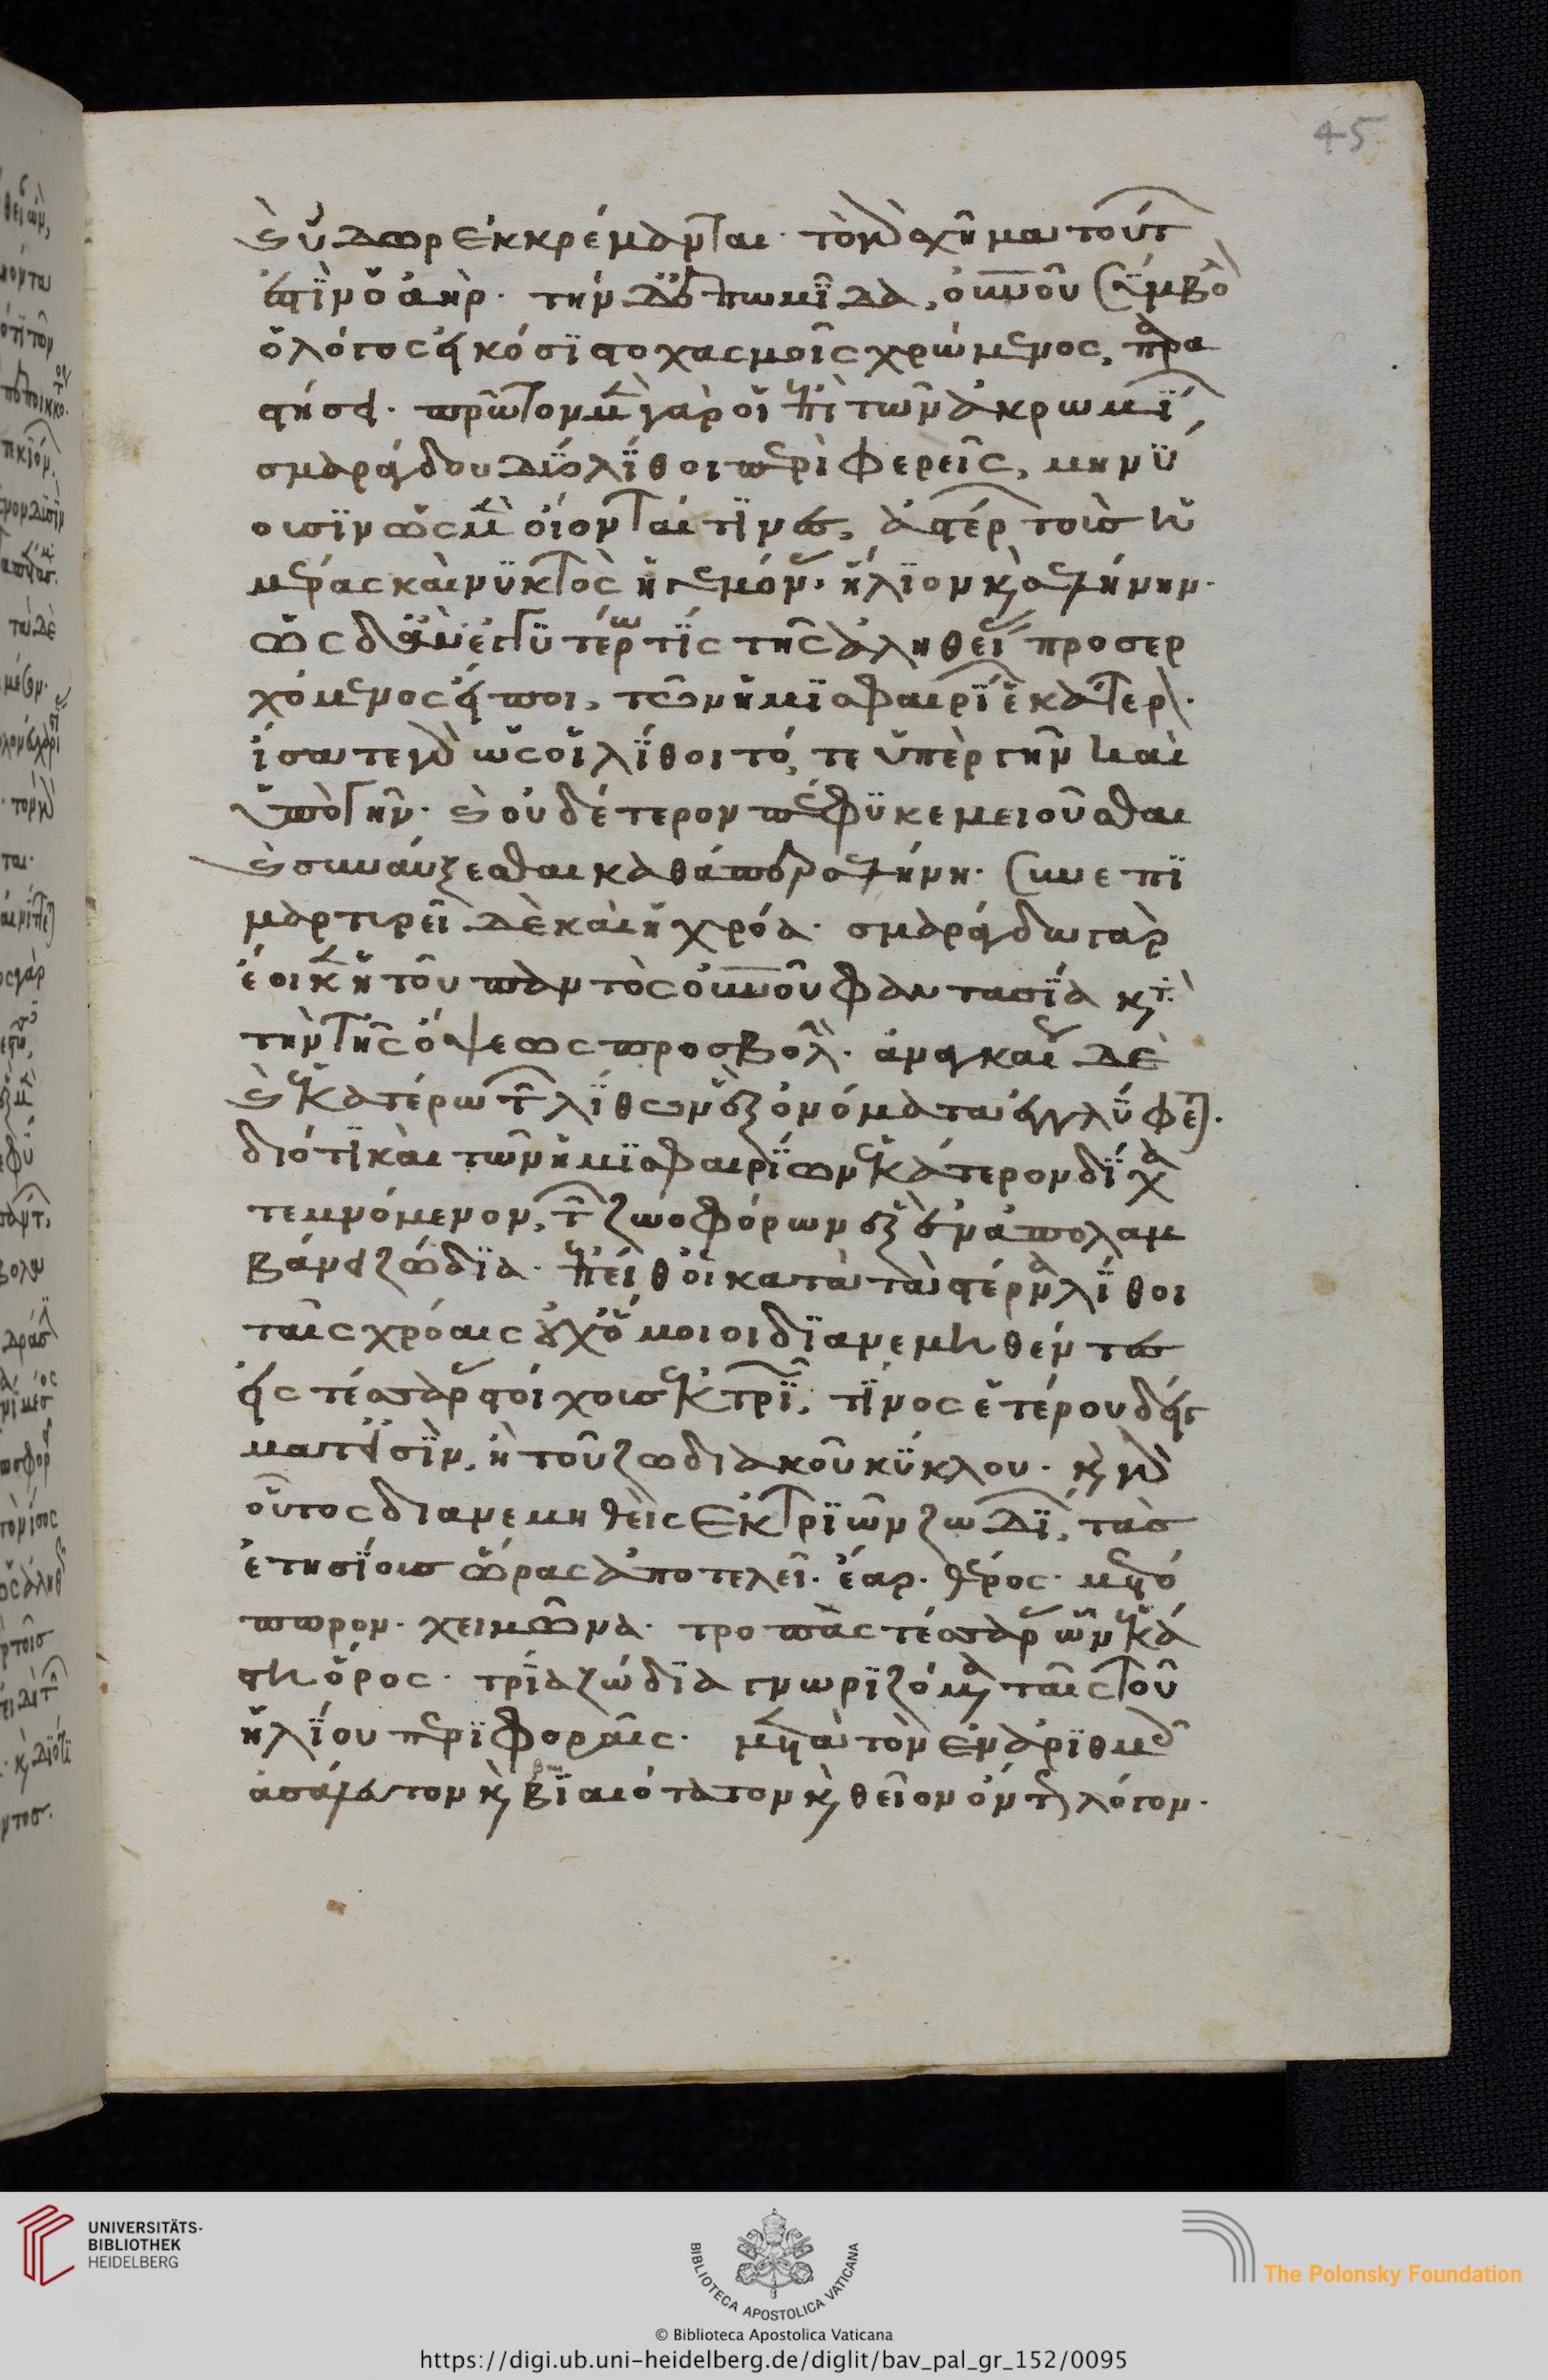 45
καὶ ὕδωρ ἐκκρέμανται· τὸ γὰρ σχῆμα τοῦτ
ἐστῒν ὁ ἀὴρ· τὴν δὲ ἐπωμίδα, οὐνοῦ σύμβολον
ὁ λόγος εἰκόσϊ στοχασμοῖς χρώμενος, παρα
στήσει· πρῶτον μὲν γὰρ οἱ ἐπὶ τῶν ἀκρωμΐων
σμαράγδου δύο λΐθοι περὶφερεῖς, μηνΰ
ουσϊν ὡς μὲν οἴονται τϊνες, ἀστέρων τοὺς ἡ
μέρας καὶ νϋκτὸς ἡγεμόνας· ἥλϊον καὶ σελήνην·
ὡς δ' ἂν ἐγγϋτέρω τῒς τῆς ἀληθείας προσερ
χόμενος εἴποι, τῶν ἡμϊσφαιρΐων ἑκάτερον·
ἴσα τε γὰρ ὡς οἱ λΐθοι τό, τε ὑπὲρ γῆν καὶ
ὑπὸ γῆν· καὶ οὐδέτερον πέφϋκε μειοῦσθαι
καὶ συναύξεσθαι καθάπερ σελήνη· συνεπϊ
μαρτυρεῖ δὲ καὶ ἡ χρόα· σμαράγδω γὰρ
ἔοικεν ἡ τοῦ παντὸς οὐνοῦ φαντασΐα κατὰ
τὴν τῆς ὄψεως προσβολὴν· ἀναγκαίως δὲ
καὶ ἑκατέρω τῶν λΐθων ἓξ ὀνόματα ἐγγλΰφεται·
διότϊ καὶ τῶν ἡμϊσφαιρΐων ἑκάτερον δΐχα
τεμνόμενον, τῶν ζωοφόρων ἓξ ἐναπολαμ
βάνει ζώδϊα· ἔπειθ' οἱ κατὰ τὰ στέρνα λΐθοι
ταῖς χρόαις οὐχ ὅμοιοι δϊανεμηθέντες
εἰς τέσσαρας στοίχους ἐκ τρϊῶν, τΐνος ἑτέρου δείγ
ματ' εἰσῒν, ἢ τοῦ ζωδιακοῦ κΰκλου· καὶ γὰρ
οὗτος διανεμηθεὶς ἐκ τρϊῶν ζωδΐων, τὰς
ἐτησΐους ὥρας ἀποτελεῖ· ἔαρ· θέρος· μετό
πωρον· χειμῶνα· τροπὰς τέσσαρας ὧν ἑκά
στη ὅρος· τρΐα ζώδϊα γνωρϊζόμενα ταῖς τοῦ
ἡλΐου περϊφοραῖς· μετὰ τὸν ἐν ἀρϊθμοῖς
ἀσάλευτον καὶ βϊαιότατον καὶ θεῖον ὄντως λόγον·
UNIVERSITÄTS-
BIBLIOTHEK
HEIDELBERG
BIBLIOTECA APOSTOLICA VATICANA
The Polonsky Foundation
© Biblioteca Apostolica Vaticana
https://digi.ub.uni-heidelberg.de/diglit/bav_pal_gr_152/0095